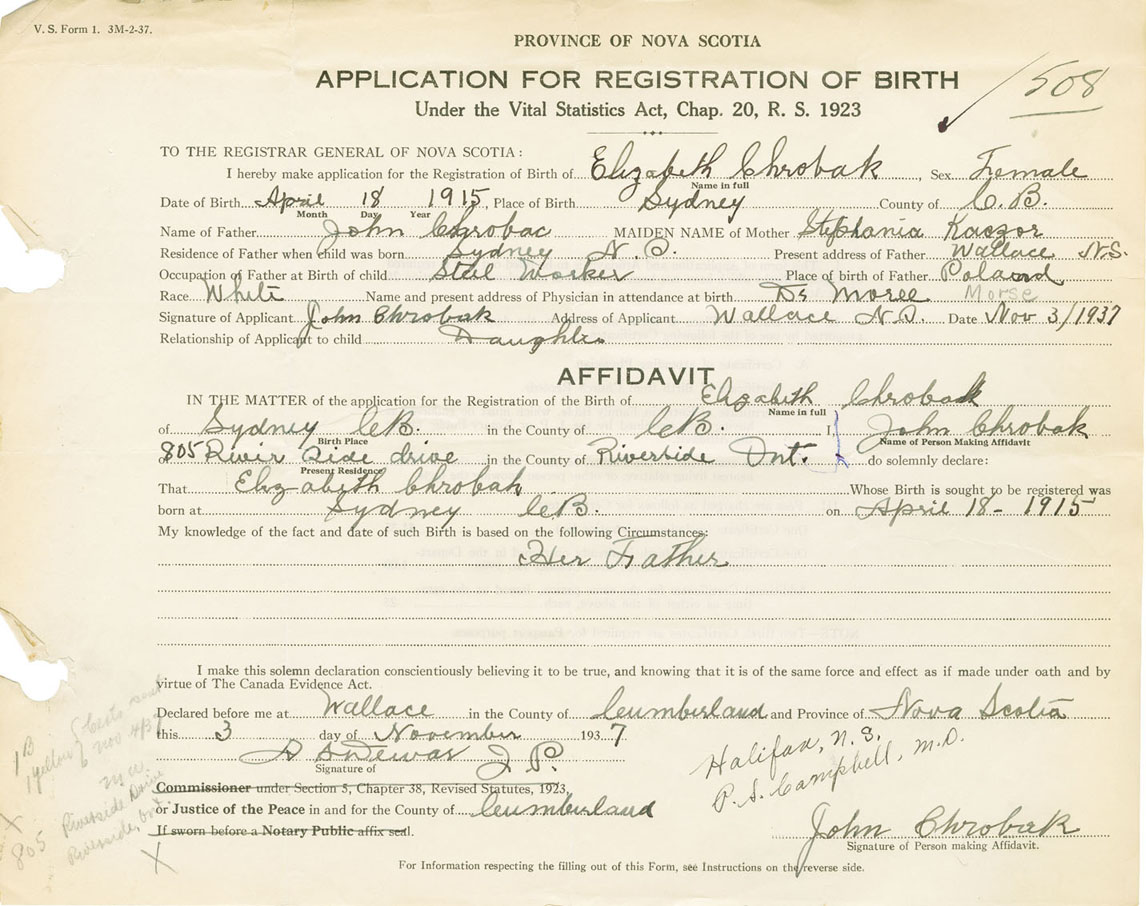 V. S. Form 1. 3M-2-37.
PROVINCE OF NOVA SCOTIA
APPLICATION FOR REGISTRATION OF BIRTH
508
Under the Vital Statistics Act, Chap. 20, R. S. 1923
TO THE REGISTRAR GENERAL OF NOVA SCOTIA:
I hereby make application for the Registration of Birth of Elizabeth Chrobak, Sex Female
Name in full
Date of Birth April 18 1915, Place of Birth Sydney County of C. B.
Month Day Year
Name of Father John Chrobac MAIDEN NAME of Mother Stephania Kaczor
Residence of Father when child was born Sydney N. S. Present address of Father Wallace N.S.
Occupation of Father at Birth of child Steel Worker Place of birth of Father Poland
Race White Name and present address of Physician in attendance at birth Dr Morse
Signature of Applicant John Chrobak Address of Applicant Wallace N.S. Date Nov 3/1937
Relationship of Applicant to child Daughter
AFFIDAVIT
IN THE MATTER of the application for the Registration of the Birth of Elizabeth Chrobak
Name in full
of Sydney C.B. in the County of C.B. I, John Chrobak
Birth Place Name of Person Making Affidavit
of 805 River Side drive in the County of Riverside Ont. do solemnly declare:
Present Residence
That Elizabeth Chrobak Whose Birth is sought to be registered was
born at Sydney C.B. on April 18-1915
My knowledge of the fact and date of such Birth is based on the following Circumstances:
Her Father
I make this solemn declaration conscientiously believing it to be true, and knowing that it is of the same force and effect as if made under oath and by
virtue of The Canada Evidence Act.
Declared before me at Wallace in the County of Cumberland and Province of Nova Scotia
this 3 day of November 1937
Dewar J P.
Signature of
Halifax, N. S.
P. S. Campbell, M.D.
Commissioner under Section 5, Chapter 38, Revised Statutes, 1923,
or Justice of the Peace in and for the County of Cumberland
If sworn before a Notary Public affix seal.
John Chrobak
Signature of Person making Affidavit.
805 Riverside Drive
Riverside, Ont
For Information respecting the filling out of this Form, see Instructions on the reverse side.